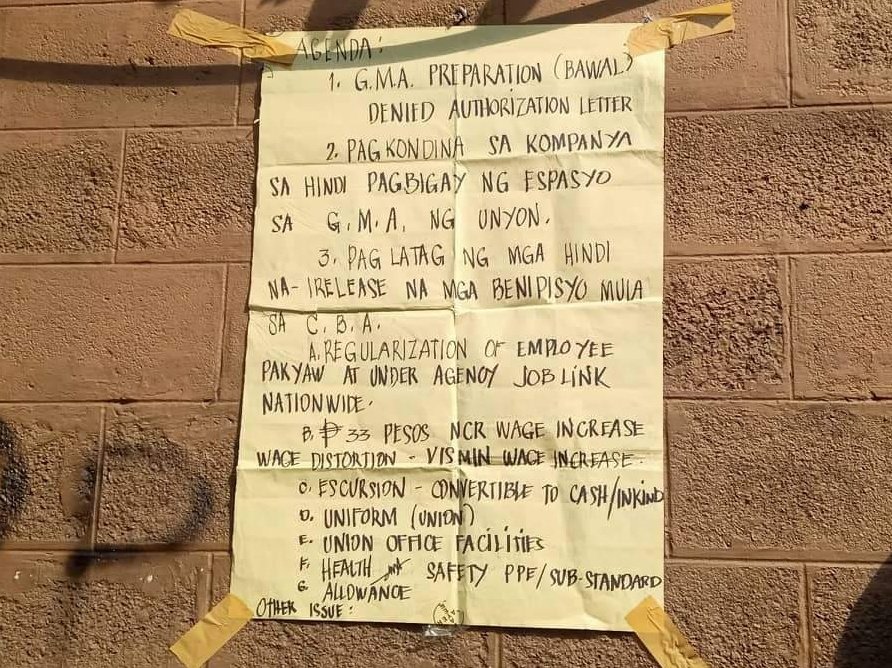 AGENDA:
1. G.M.A. PREPARATION (BAWAL)
DENIED AUTHORIZATION LETTER
2. PAGKONDINA SA KOMPANYA
SA HINDI PAGBIGAY NG ESPASYO
SA G.M.A. NG UNYON.
3. PAG LATAG NG MGA HINDI
NA-IRELEASE NA MGA BENIPISYO MULA
SA C.B.A.
A. REGULARIZATION OF EMPLOYEE
PAKYAW AT UNDER AGENCY JOBLINK
NATIONWIDE.
B. ₱ 33 PESOS NCR WAGE INCREASE
WAGE DISTORTION - VISMIN WAGE INCREASE.
C. ESCURSION - CONVERTIBLE TO CASH/INKIND
D. UNIFORM (UNION)
E. UNION OFFICE FACILITIES
F. HEALTH SAFETY PPE/SUB-STANDARD
G. ALLOWANCE
OTHER ISSUE: